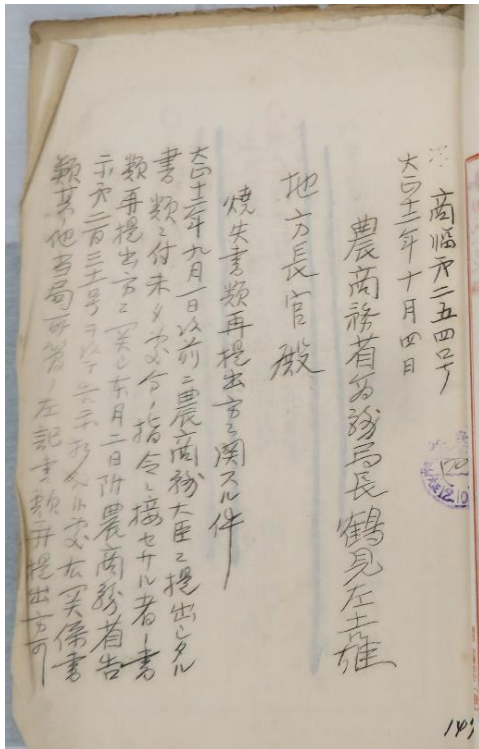 商臨第二五四号
大正十二年十月四日
農商務省商務局長鶴見左吉雄
地方長官殿
焼失書類再提出方ニ関スル件
大正十二年九月一日以前ニ農商務大臣ニ提出シタル
書類ニ付未タ処分ノ指令ニ接セサル者ノ書
類再提出方ニ関シ本月二日附農商務省告
示第二百三十一号ヲ以テ告示相成候処右関係書
類其他当局所管ノ左記書類再提出方可
12.10
147